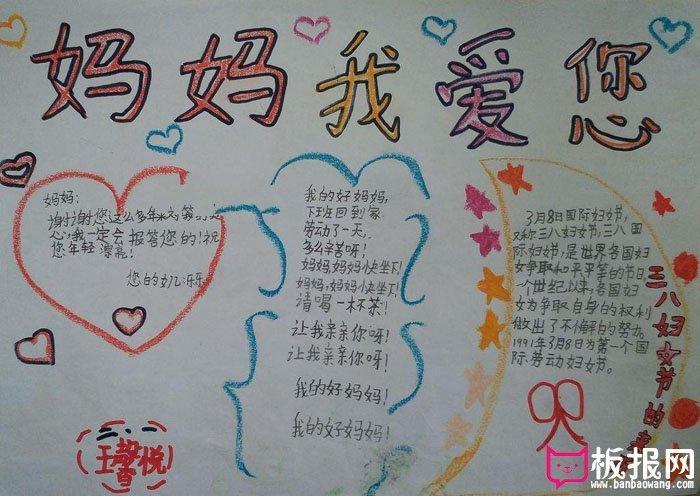 妈妈我爱您
妈妈:
谢谢您这么多年
心!我一定会报答您的!祝
您年轻漂亮!
您的女儿:
我的好妈妈,
下班回到家
劳动了一天,
多么辛苦呀!
妈妈,妈妈快坐下!
妈妈,妈妈快坐下!
请喝一杯茶!
让我亲亲你呀!
让我亲亲你呀!
我的好妈妈!
我的好妈妈!
3月8日国际妇女节,
又称三八妇女节,三八国
际妇女节,是世界各国妇
女争取和平平等的节日
一个世纪以来,各国妇
女为争取自身的权利
做出了不懈的努力,
1991年3月8日为第一个国
际劳动妇女节。
三八妇女节的
二.一
王馨悦
板报网
www.banbaowang.com